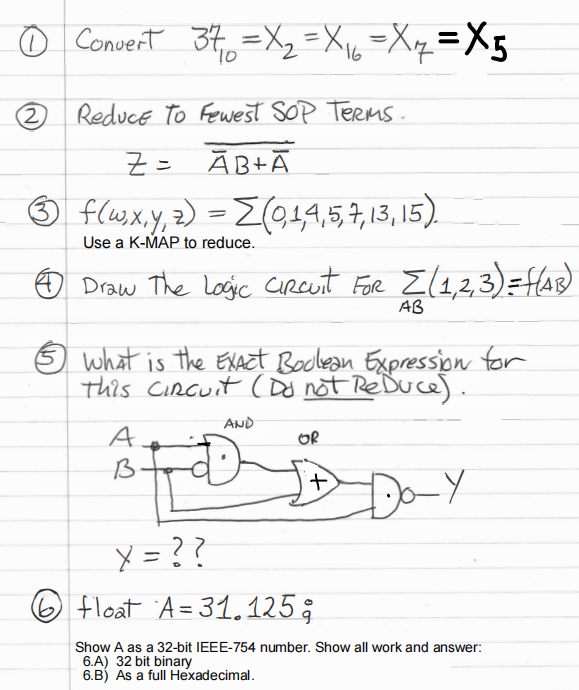 ① Convert 37₁₀ = X₂ = X₁₆ = X₇ = X₅
② Reduce to Fewest SOP Terms.
Z = \overline{A̅B+A̅}
③ f(w,x,y,z) = Σ(0,1,4,5,7,13,15).
Use a K-MAP to reduce.
④ Draw The Logic Circuit For Σ(1,2,3)=f(AB)
AB
⑤ What is the Exact Boolean Expression for
this circuit (Do not ReDuce).
AND
A
OR
B
·
+
·
Y
Y = ??
⑥ float A = 31.125;
Show A as a 32-bit IEEE-754 number. Show all work and answer:
6.A) 32 bit binary
6.B) As a full Hexadecimal.